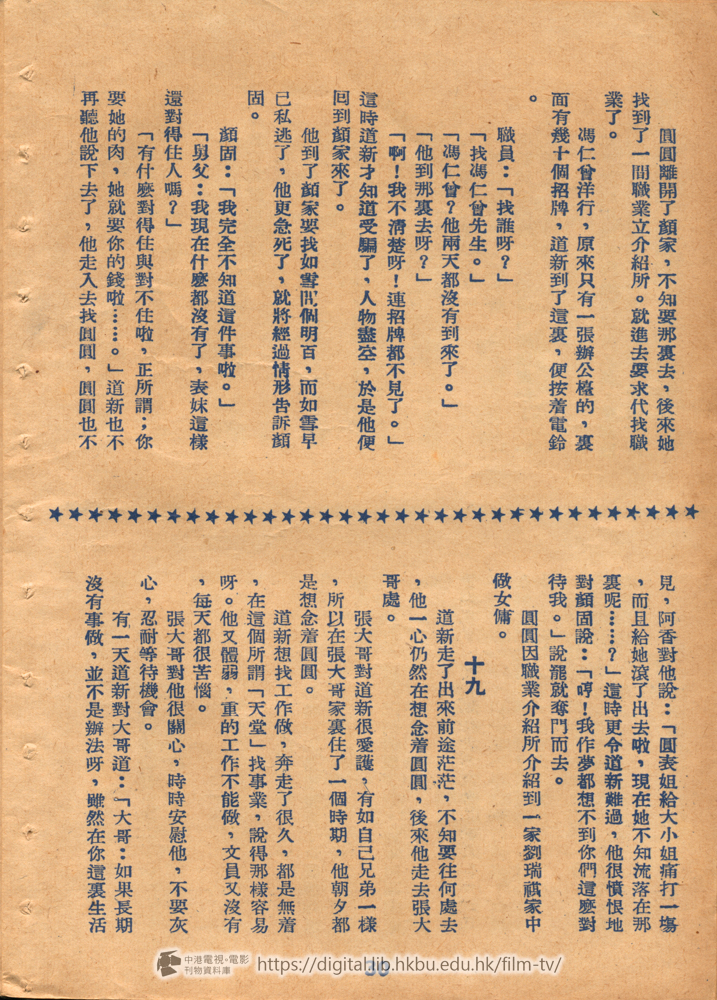 圓圓離開了顏家，不知要那裏去，後來她
找到了一間職業立介紹所。就進去要求代找職
業了。
馮仁曾洋行，原來只有一張辦公檯的，裏
面有幾十個招牌，道新到了這裏，便按着電鈴
。
職員：「找誰呀？」
「找馮仁曾先生。」
「馮仁曾？他兩天都沒有到來了。」
「他到那裏去呀？」
「啊！我不清楚呀！連招牌都不見了。」
這時道新才知道受騙了，人物盡空，於是他便
回到顏家來了。
他到了顏家要找如雪問個明百，而如雪早
已私逃了，他更急死了，就將經過情形告訴顏
固。
顏固：「我完全不知道這件事啦。」
「舅父：我現在什麼都沒有了，表妹這樣
還對得住人嗎？」
「有什麼對得住與對不住啦，正所謂；你
要她的肉，她就要你的錢啦……。」道新也不
再聽他說下去了，他走入去找圓圓，圓圓也不
見，阿香對他說：「圓表姐給大小姐痛打一塲
，而且給她滾了出去啦，現在她不知流落在那
裏呢……？」這時更令道新難過，他很憤恨地
對顏固說：「哼！我作夢都想不到你們這麼對
待我。」說罷就奪門而去。
圓圓因職業介紹所介紹到一家劉瑞祺家中
做女傭。
十九
道新走了出來前途茫茫，不知要往何處去
，他一心仍然在想念着圓圓，後來他走去張大
哥處。
張大哥對道新很愛護，有如自己兄弟一樣
，所以在張大哥家裏住了一個時期，他朝夕都
是想念着圓圓。
道新想找工作做，奔走了很久，都是無着
，在這個所謂「天堂」找事業，說得那樣容易
呀。他又體弱，重的工作不能做，文員又沒有
，每天都很苦惱。
張大哥對他很關心，時時安慰他，不要灰
心，忍耐等待機會。
有一天道新對大哥道：「大哥：如果長期
沒有事做，並不是辦法呀，雖然在你這裏生活
中港電視·電影
刊物資料庫
https://digital.lib.hkbu.edu.hk/film-tv/